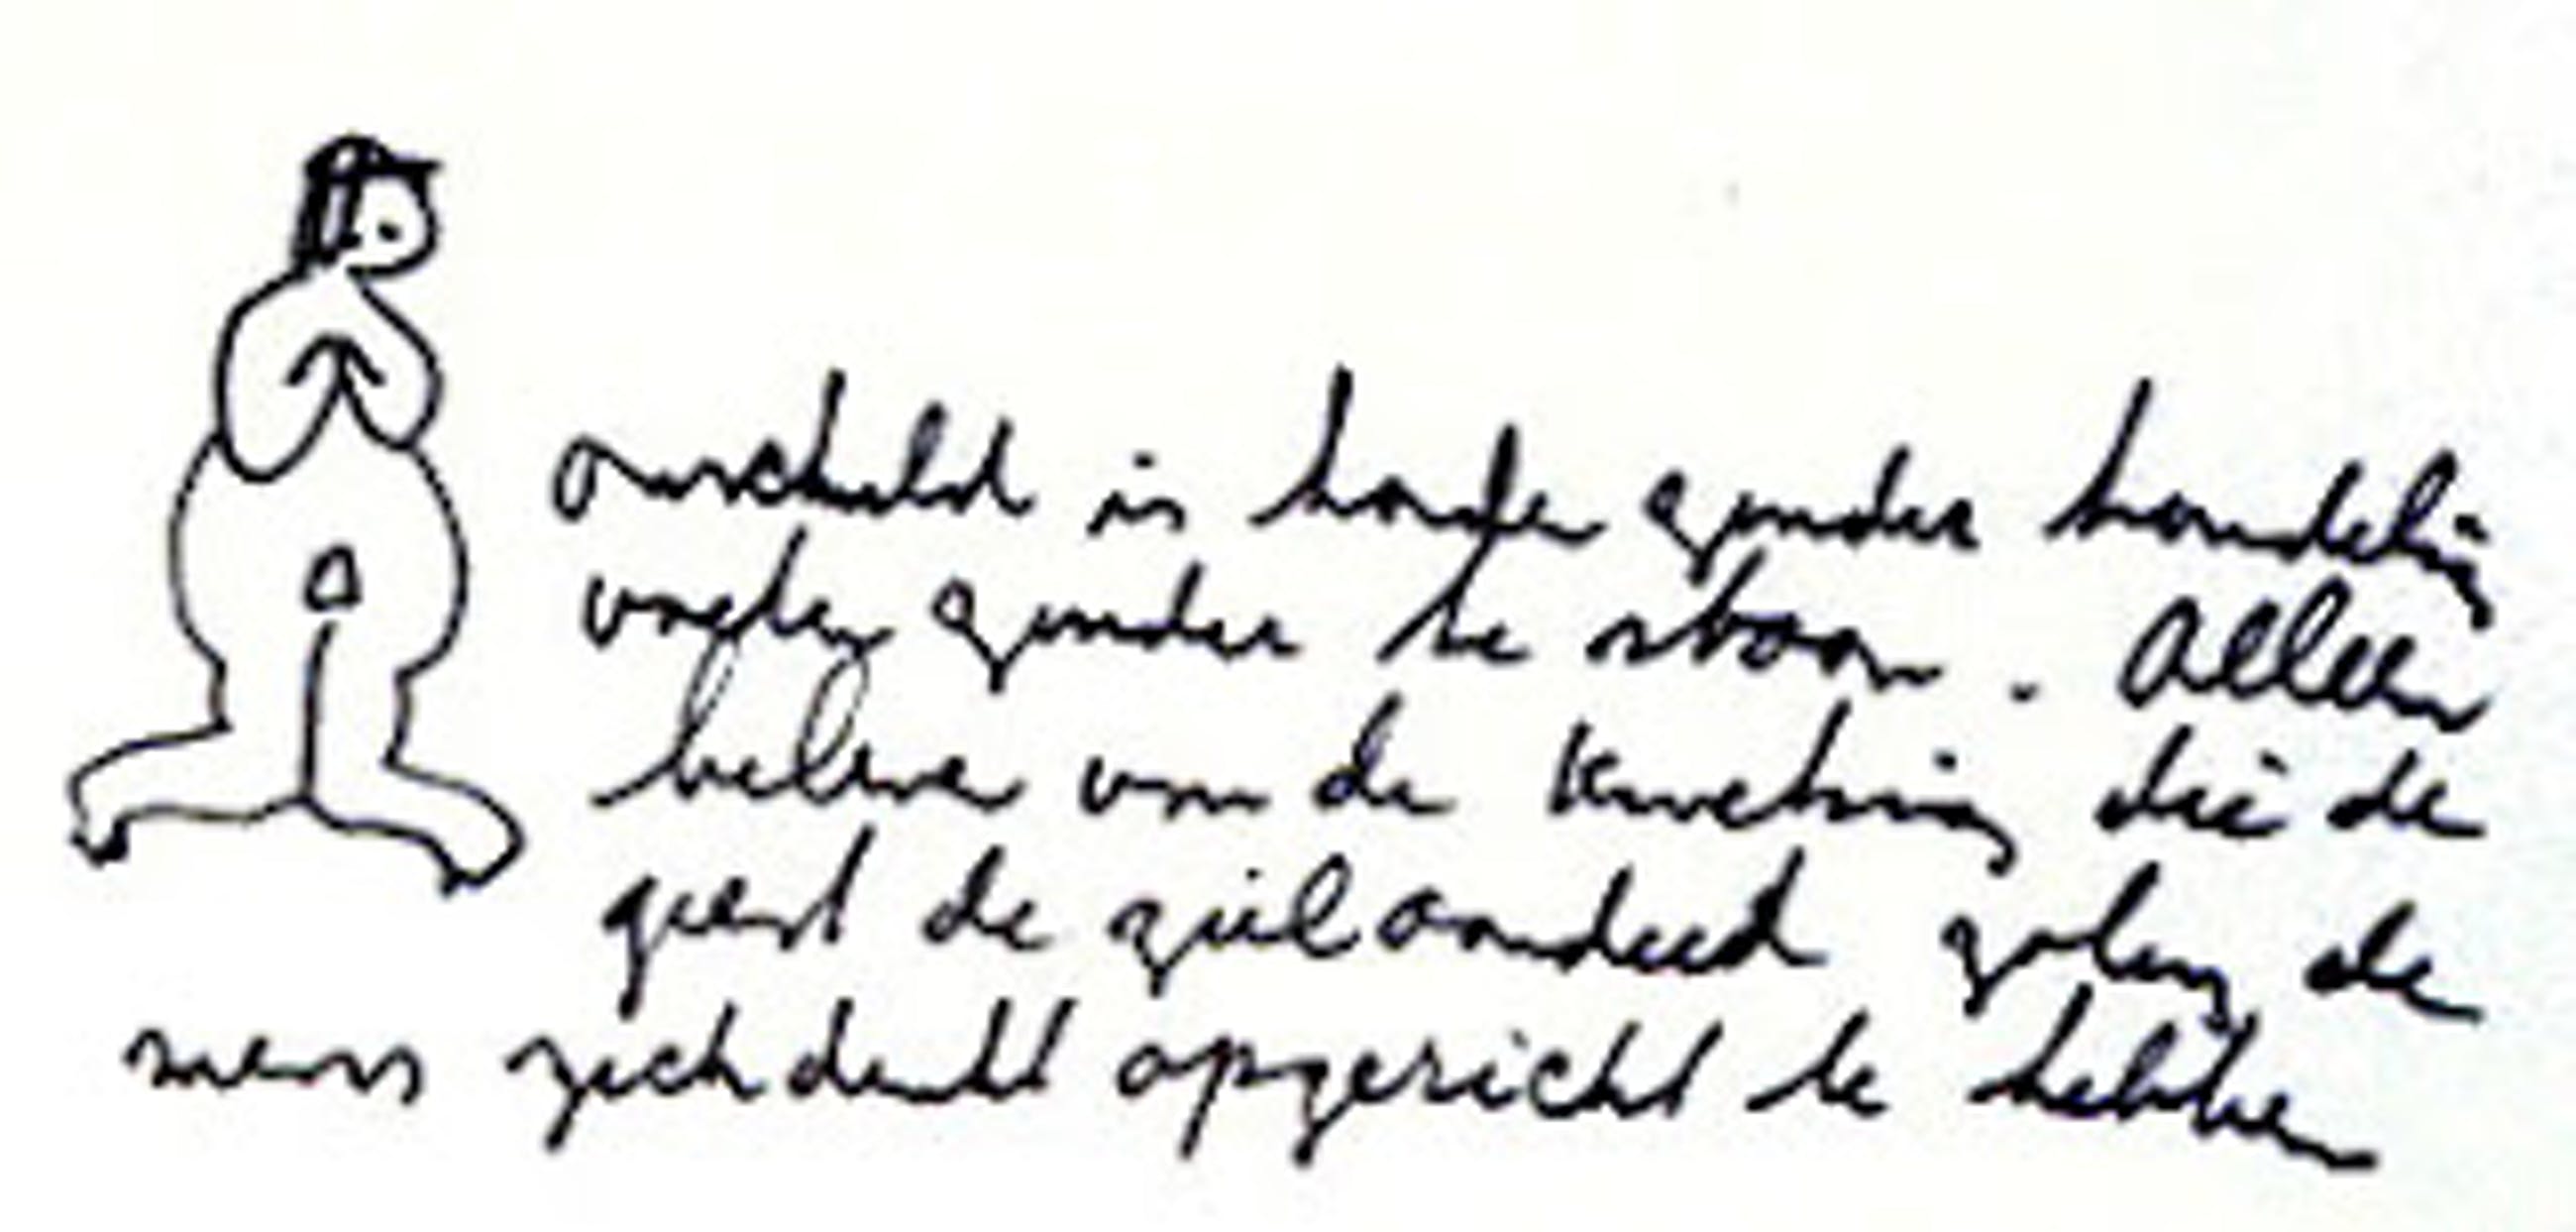 onschuld is handen zonder handeling
voeten zonder te staan. Alleen
weten van de kwetsing die de
geest de ziel aandeed zolang de
mens zich denkt opgericht te hebben